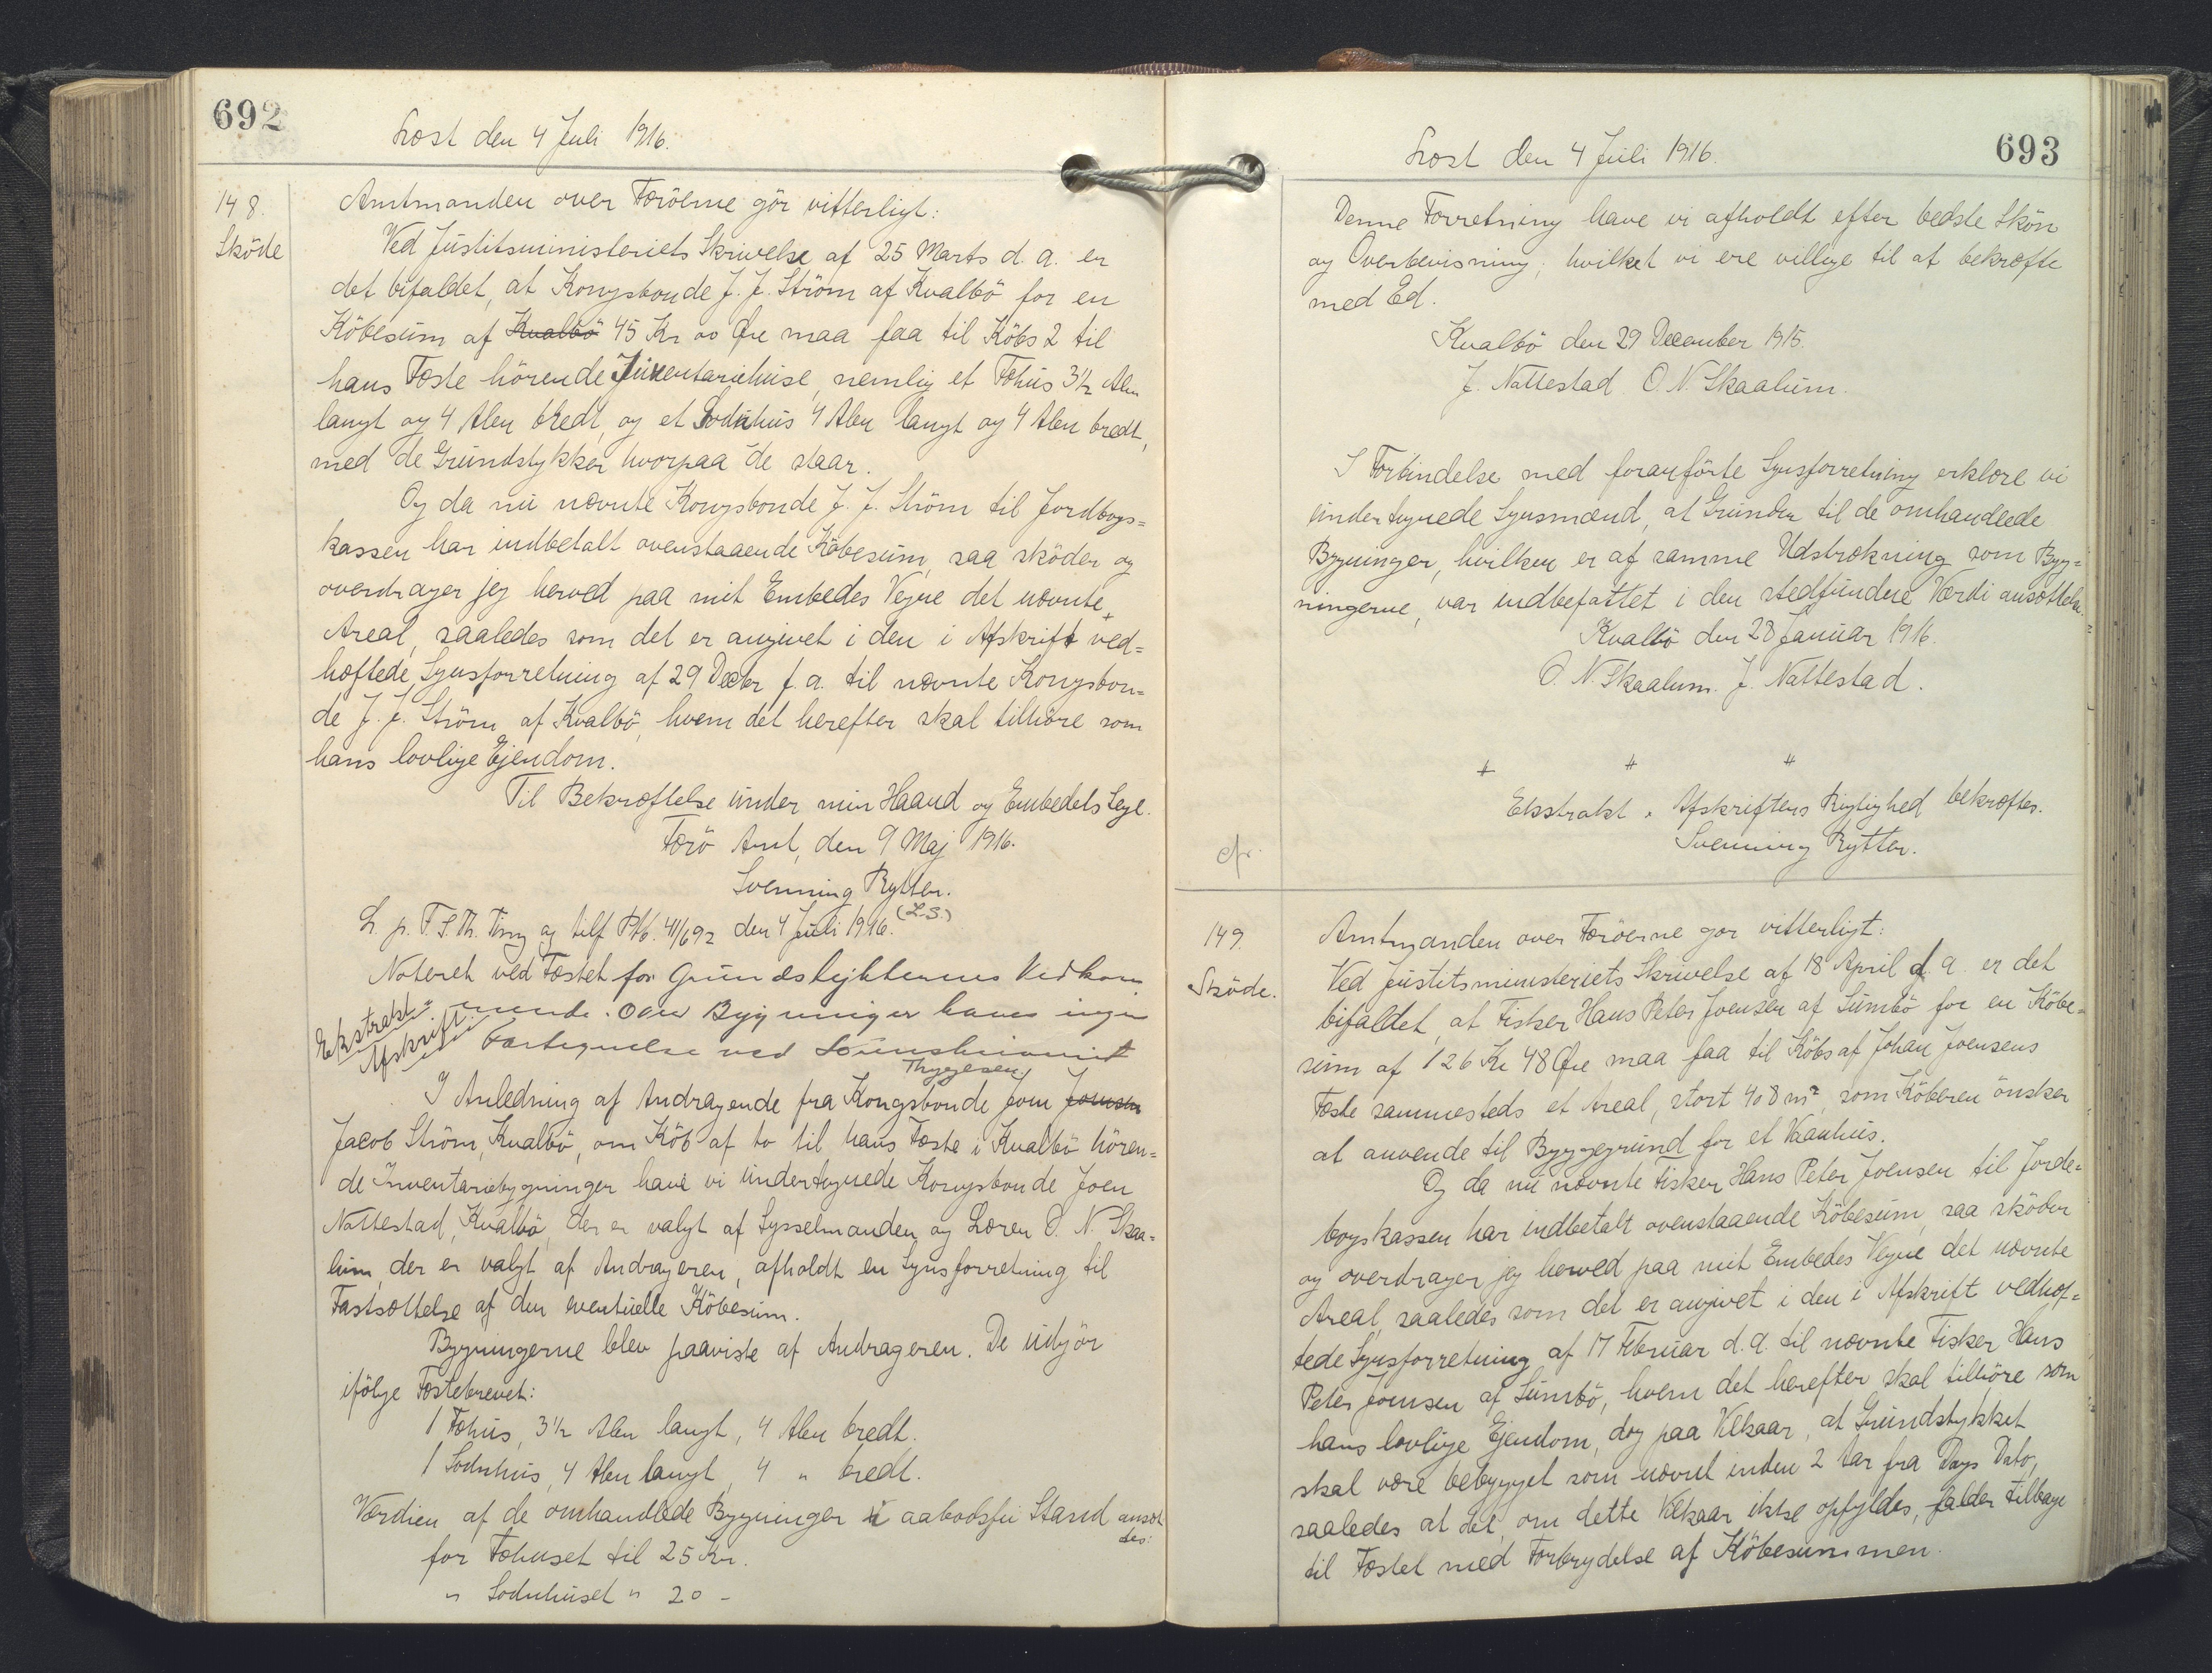 692
Læst den 4 Juli 1916.
148.
Sköde
Amtmanden over Færöerne gör vitterligt:
Ved Justitsministeriets Skrivelse af 25 Marts d. a. er
det bifaldet, at Kongsbonde J. J. Ström af Kvalbö for en
Köbesum af Kvalbö 45 Kr 00 Öre maa faa til Köbs 2 til
hans Fæste hörende Inventariehuse, nemlig et Fæhus 3½ Alen
langt og 4 Alen bredt, og et Sodnhus 4 Alen langt og 4 Alen bredt,
med de Grundstykker hvorpaa de staar.
Og da nu nævnte Kongsbonde J. J. Ström til Jordbogs=
kassen har indbetalt ovenstaaende Köbesum, saa sköder og
overdrager jeg herved paa mit Embedes Vegne det nævnte
Areal, saaledes som det er angivet i den i Afskrift ved=
hæftede Synsforretning af 29 Decbr f. a. til nævnte Kongsbon=
de J. J. Ström af Kvalbö, hvem det herefter skal tilhöre som
hans lovlige Ejendom.
Til Bekræftelse under min Haand og Embedets Segl.
Færö Amt, den 9 Maj 1916.
Svenning Rytter.
(L.S.)
L. p. F. S. Th. Ting og tilf Ptb. 41/692 den 4 Juli 1916.
Noteret ved Fæstet for Grundstykkernes Vedkom
mende. Om Bygninger haves ingen
Fortegnelse ved Sorenskriveriet
Ekstrakt=
Afskrift.
Thygesen
I Anledning af Andragende fra Kongsbonde Joen Joensen
Jacob Ström, Kvalbö, om Köb af to til hans Fæste i Kvalbö hören=
de Inventariebygninger have vi undertegnede Kongsbonde Joen
Nattestad, Kvalbö, der er valgt af Sysselmanden og Lærer O. N. Skaa=
lum, der er valgt af Andrageren, afholdt en Synsforretning til
Fastsættelse af den eventuelle Köbesum.
Bygningerne blev paaviste af Andrageren. De udgör
ifölge Fæstebrevet:
1 Fæhus, 3½ Alen langt, 4 Alen bredt.
1 Sodnhus, 4 Alen langt, 4 " bredt.
Værdien af de omhandlede Bygninger i aabodsfri Stand ansæt
tes:
for Fæhuset til 25 Kr.
" Sodnhuset " 20 -
693
Læst den 4 Juli 1916.
Denne Forretning have vi afholdt efter bedste Skön
og Overbevisning, hvilket vi ere villige til at bekræfte
med Ed.
Kvalbö den 29 December 1915.
J. Nattestad. O. N. Skaalum.
I Forbindelse med foranförte Synsforretning erklære vi
undertegnede Synsmænd, at Grunden til de omhandlede
Bygninger, hvilken er af samme Udstrækning som Byg=
ningerne, var indbefattet i den stedfundne Værdi ansættelse.
Kvalbö den 28 Januar 1916.
O. N. Skaalum. J. Nattestad.
" " "
Ekstrakt. Afskriftens Rigtighed bekræftes.
Svenning Rytter.
cfr.
149.
Sköde.
Amtmanden over Færöerne gör vitterligt:
Ved Justitsministeriets Skrivelse af 18 April d. a. er det
bifaldet, at Fisker Hans Peter Joensen af Sumbö for en Köbe=
sum af 126 Kr 48 Öre maa faa til Köbs af Johan Joensens
Fæste sammesteds et Areal, stort 408 m², som Köberen önsker
at anvende til Byggegrund for et Vaanhus.
Og da nu nævnte Fisker Hans Peter Joensen til Jorde=
bogskassen har indbetalt ovenstaaende Köbesum, saa sköder
og overdrager jeg herved paa mit Embedes Vegne det nævnte
Areal, saaledes som det er angivet i den i Afskrift vedhæf=
tede Synsforretning af 17 Februar d. a. til nævnte Fisker Hans
Peter Joensen af Sumbö, hvem det herefter skal tilhöre som
hans lovlige Ejendom, dog paa Vilkaar, at Grundstykket
skal være bebygget som nævnt inden 2 Aar fra Dags Dato,
saaledes at det, om dette Vilkaar ikke opfyldes, falder tilbage
til Fæstet med Forbrydelse af Köbesummen.